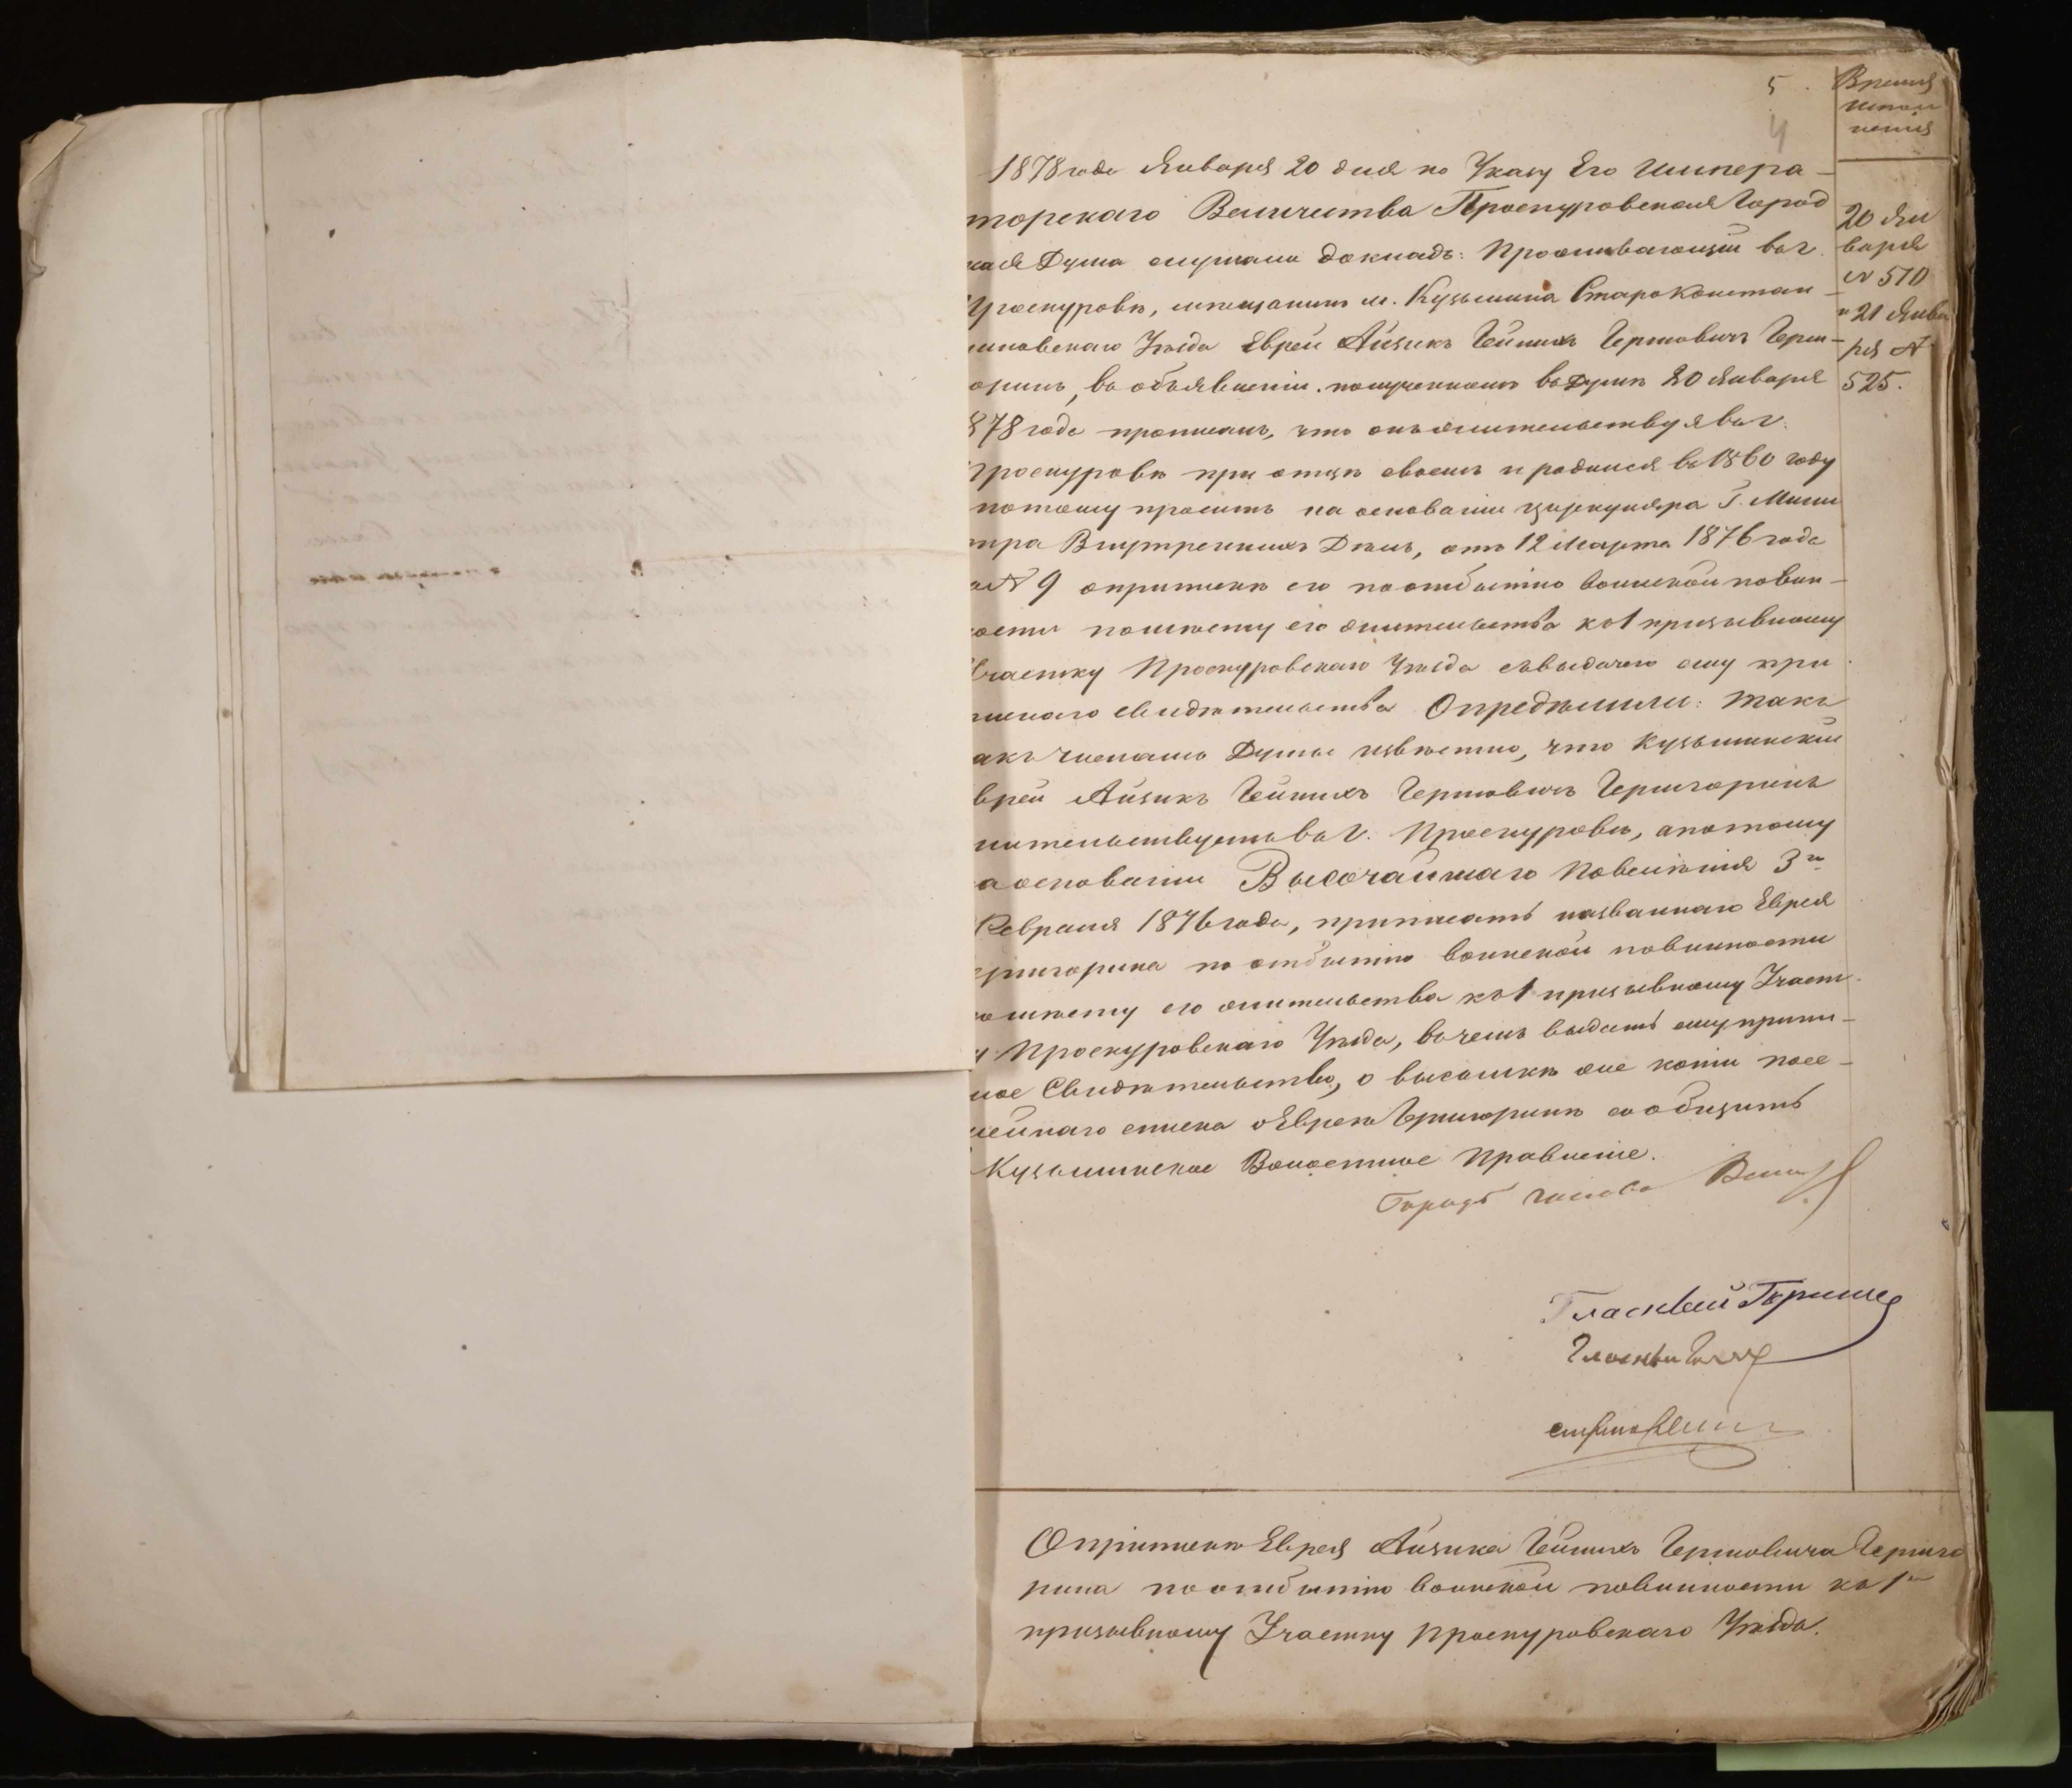 5
4
Время
испол
ненія
1878 года Января 20 дня по Указу Его Импера-
торскаго Величества Проскуровская Город
кая Дума слушали докладъ: Проживающій въ г.
Проскуровѣ, мѣщанинъ м. Кузьмина Староконстан-
тиновскаго Уѣзда Еврей Айзикъ Гейнихъ Гершовичъ Герш-
оринъ, въ объявленіи полученномъ въ Думѣ 20 Января
878 года прописалъ, что онъ жительствуя въ г.
Проскуровѣ при отцѣ своемъ и родился въ 1860 году
потому проситъ на основаніи циркуляра Г. Мини
тра Внутреннихъ Дѣлъ, отъ 12 Марта 1876 года
за № 9 о припискѣ его по отбытію воинской повин-
ости по мѣсту его жительства къ 1 призывному
Участку Проскуровскаго Уѣзда съ выдачею ему при
писнаго свидѣтельства Опредѣлили: Такъ
акъ членамъ Думы извѣстно, что Кузьминскій
врей Айзикъ Гейнихъ Гершовичъ Гершгоринъ
жительствуетъ въ г. Проскуровѣ, а потому
а основаніи Высочайшаго Повелѣнія 3го
Февраля 1876 года, приписать названнаго Еврея
ершгорина по отбытію воинской повинности
по мѣсту его жительства къ 1 призывному Участ-
у Проскуровскаго Уѣзда, въ чемъ выдать ему припи-
ное Свидѣтельство, о высылкѣ же копіи посе-
мейнаго списка о Евреѣ Гершгоринѣ сообщить
Кузьминское Волостное Правленіе.
20 Ян
варя
№ 510
и 21 Янва
ря №
525.
Город голова
Гласный
Гласный
О припискѣ Еврея Айзика Гейнихъ Гершовича Гершго
рина по отбытію воинской повинности къ 1му
призывному Участку Проскуровскаго Уѣзда.